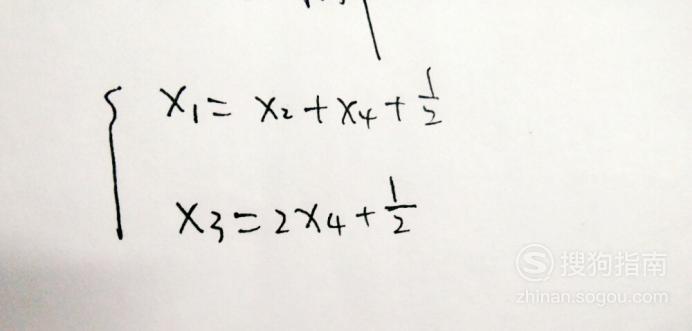 x₁ = x₂ + x₄ + 1/2
x₃ = 2x₄ + 1/2
搜狗指南
zhinan.sogou.com